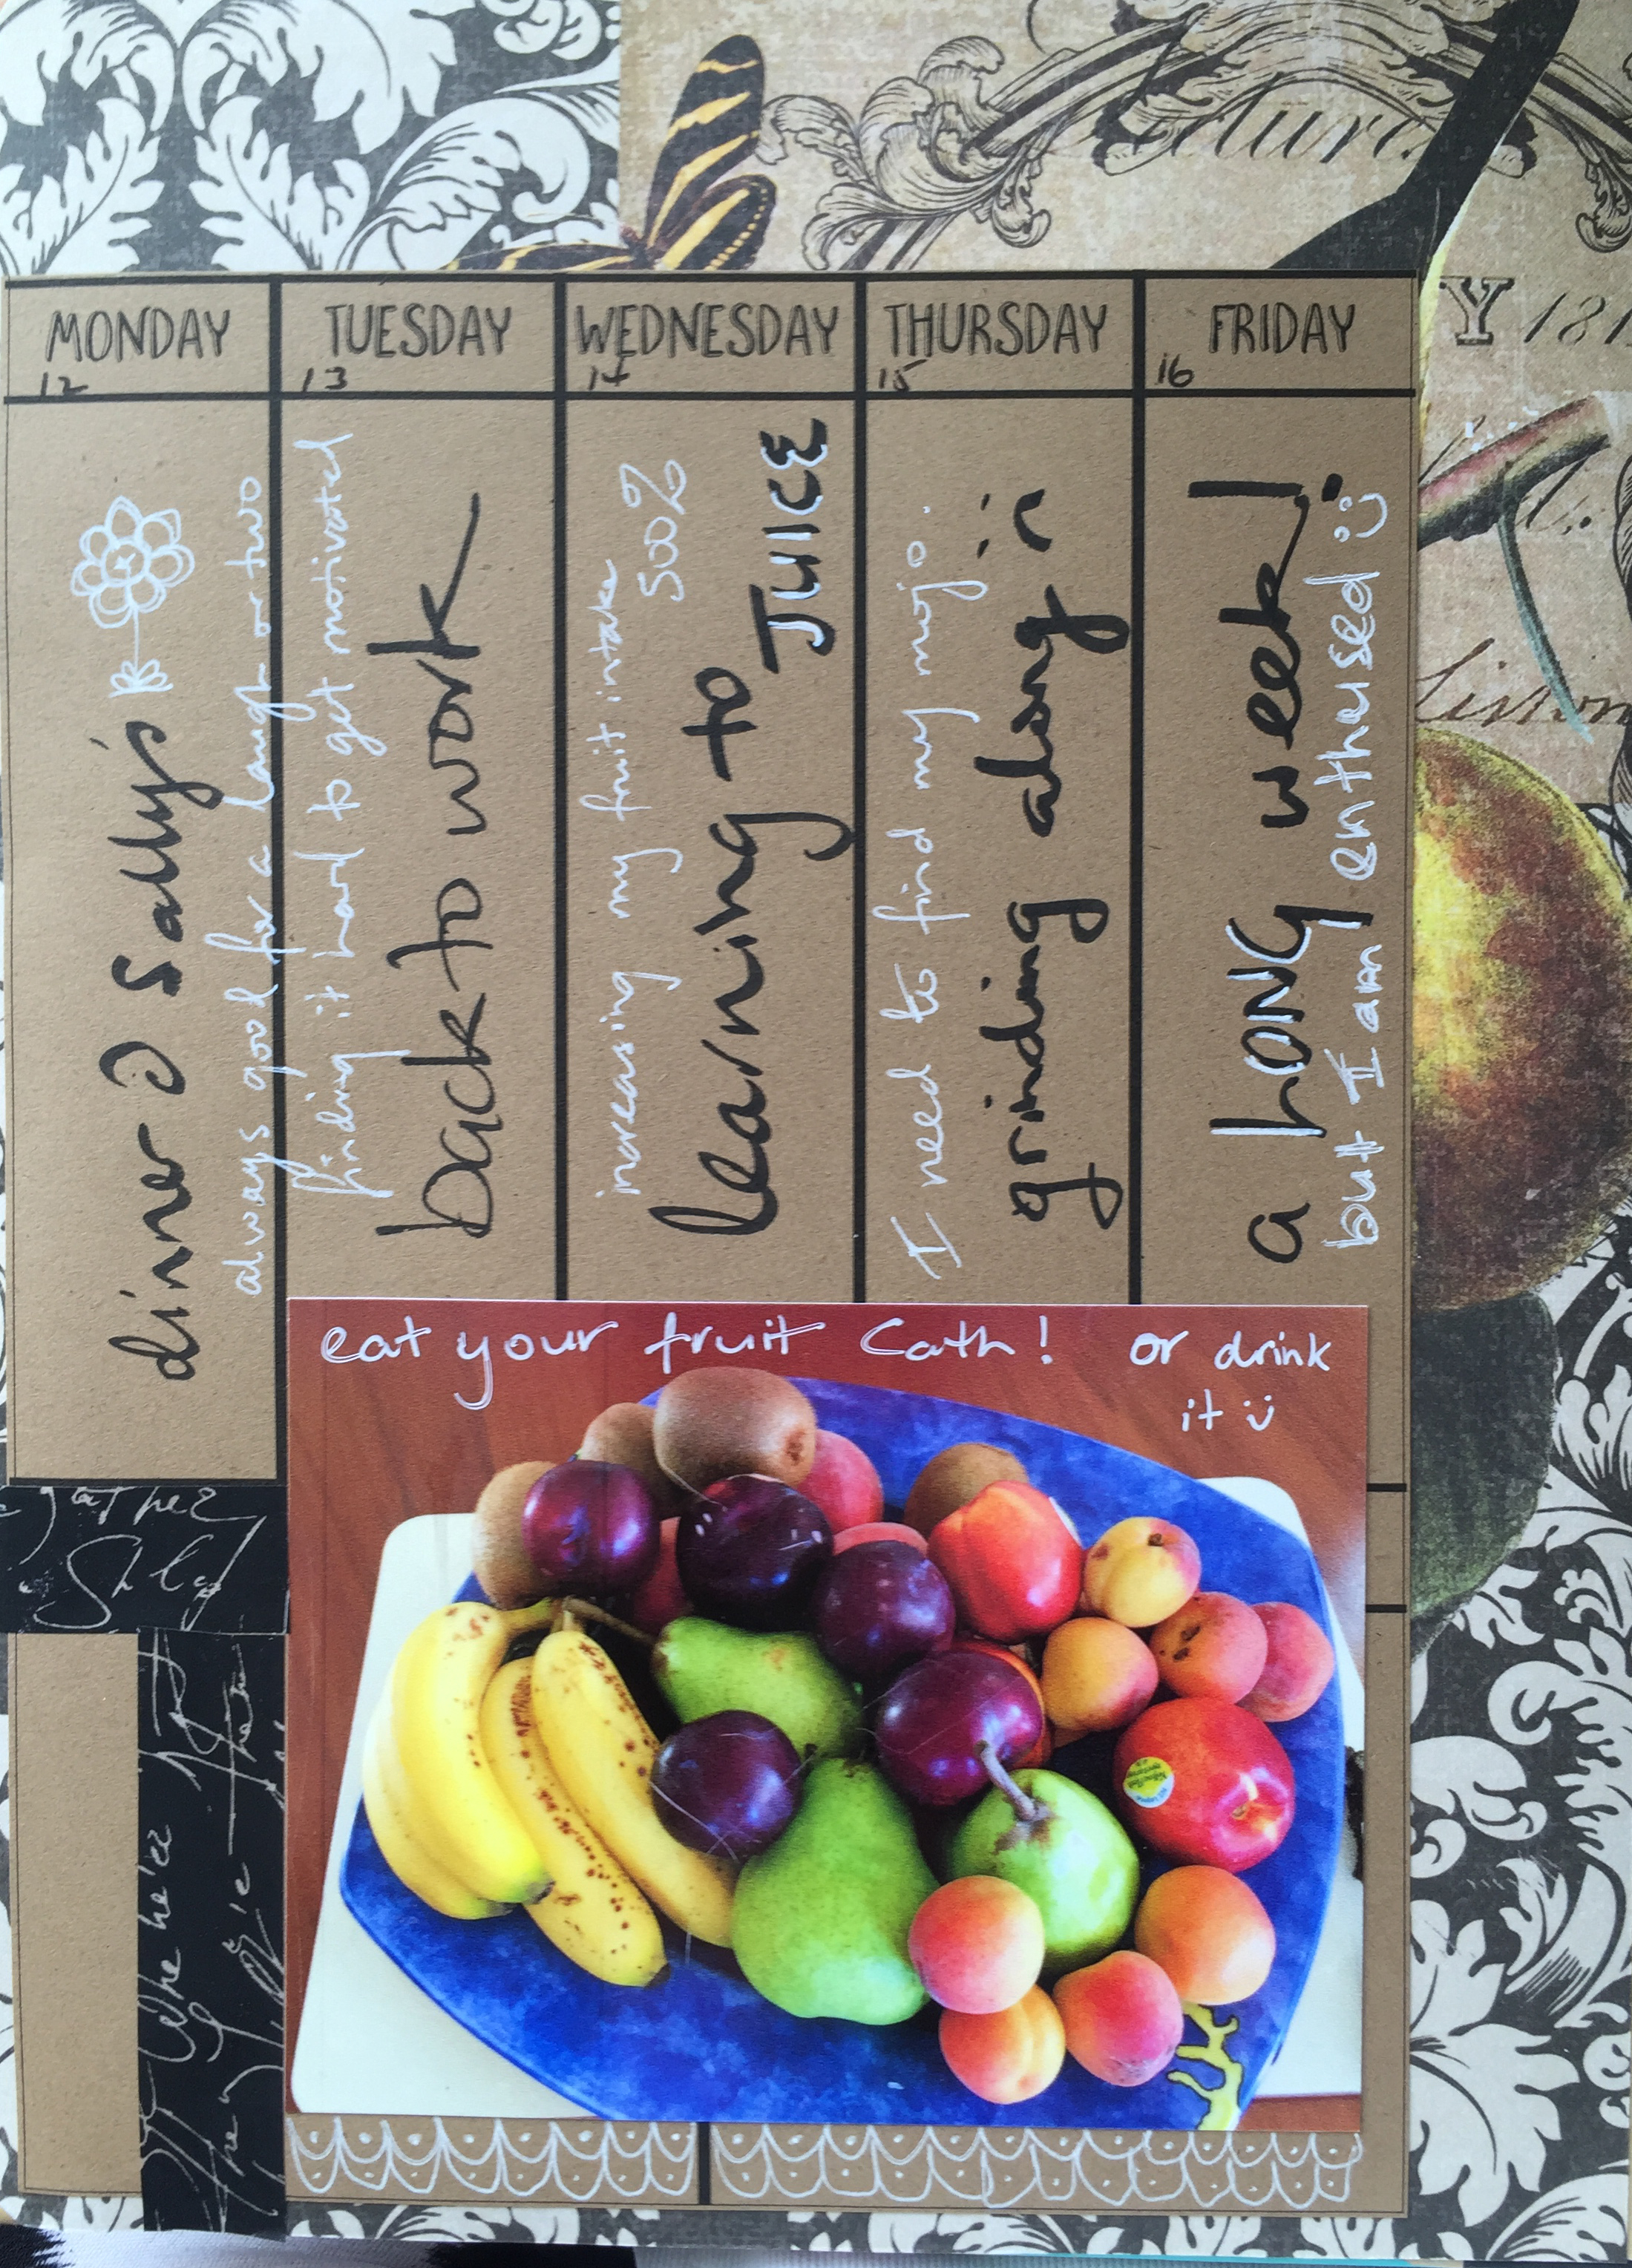 MONDAY
12
dinner @ Sally's
always good for a laugh or two
TUESDAY
13
finding it hard to get motivated
back to work
WEDNESDAY
14
increasing my fruit intake
500%
learning to
JUICE
THURSDAY
15
I need to find my mojo.
grinding along :(
FRIDAY
16
a LONG week!
but I am enthused :)
eat your fruit Cath! or drink
it :)
Y 181